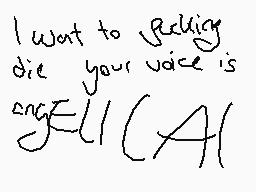 I want to fucking
die your voice is
angEllCAl